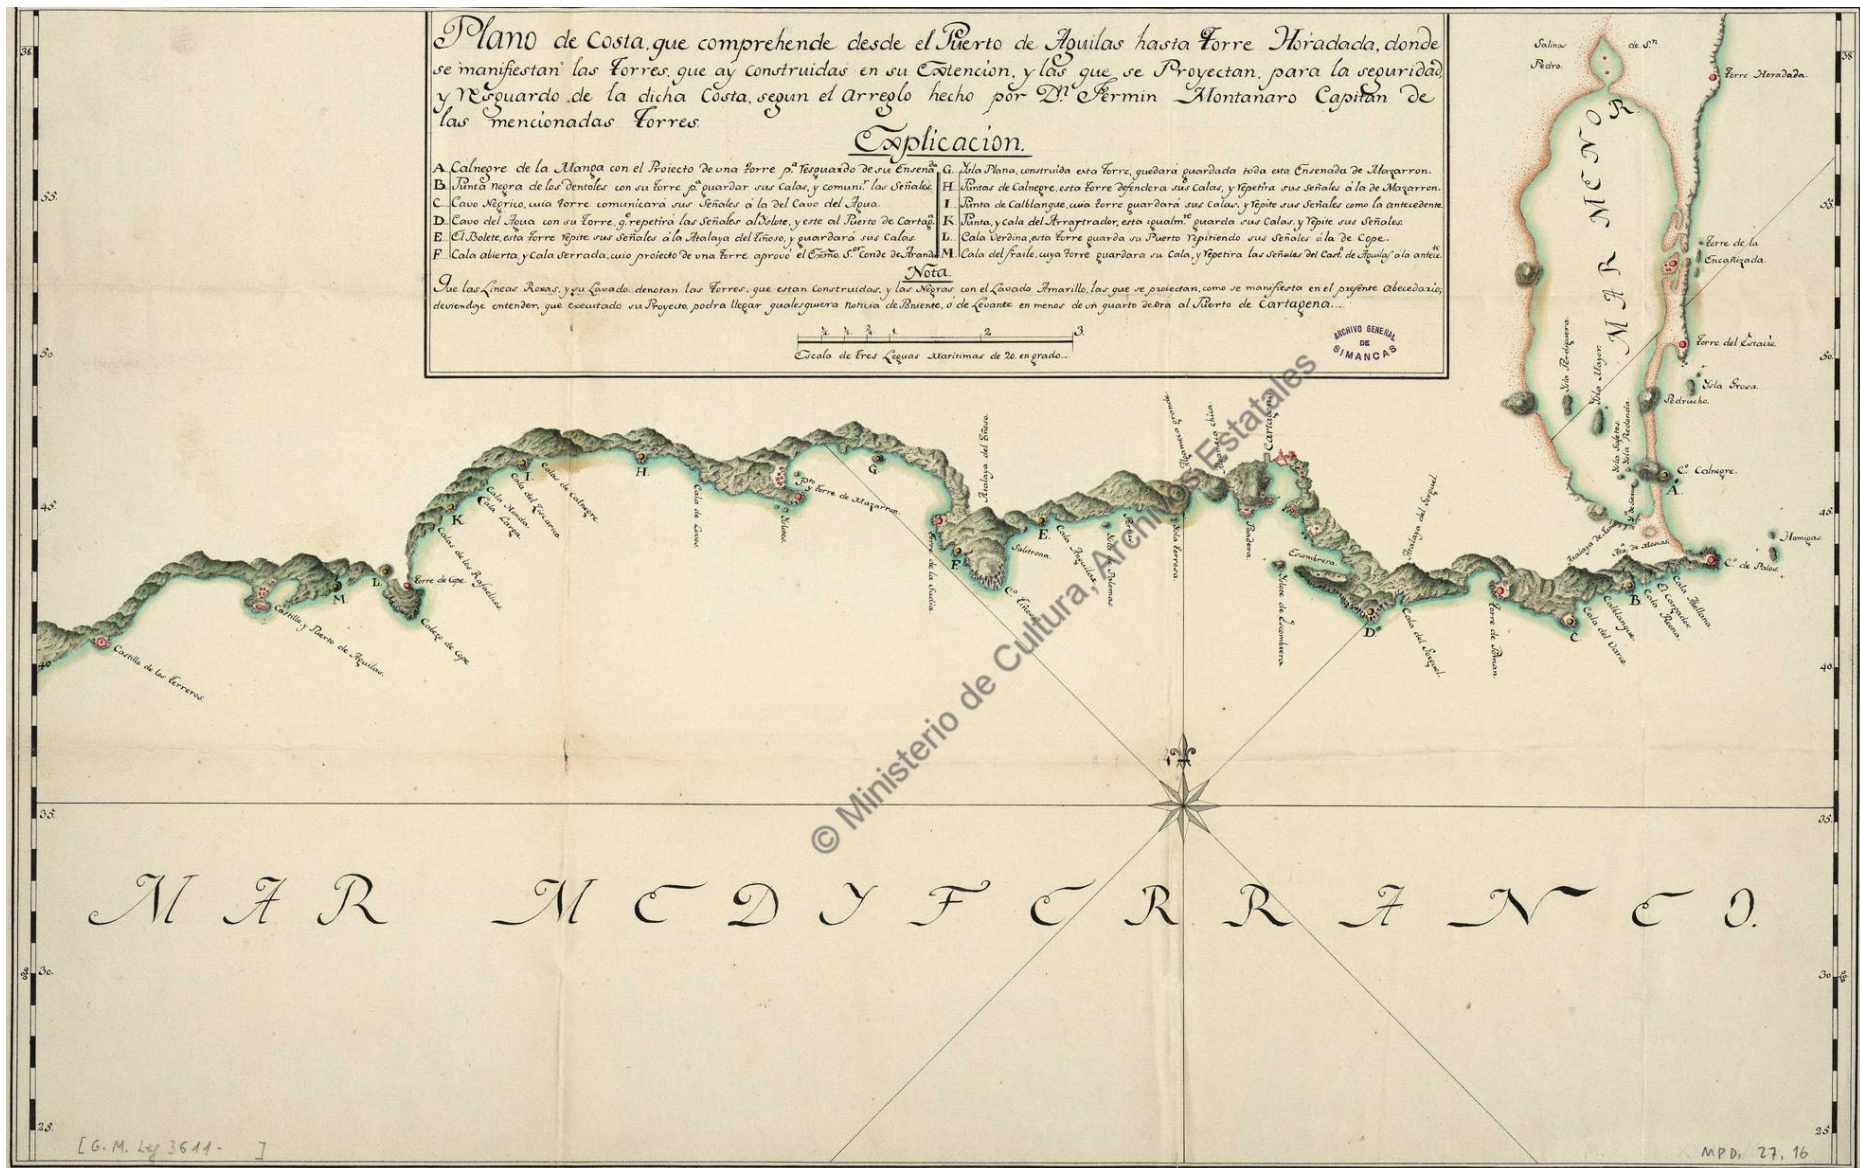 Plano de Costa, que comprehende desde el Puerto de Aguilas hasta Torre Horadada, donde
se manifiestan las Torres, que ay construidas en su Extencion, y las que se Proyectan, para la seguridad,
y resguardo de la dicha Costa, segun el arreglo hecho por Dn. Fermin Montañaro Capitan de
las mencionadas Torres.
Explicacion.
A. Calnegre de la Manga con el Proiecto de una torre pa. resguardo de su Ensenda.
B. Punta negra de los dentoles con su torre pa. guardar sus Calas, y comunir. las Señales.
C. Cavo Negrico, cuia torre comunicará sus Señales á la del Cavo del Agua.
D. Cavo del Agua con su Torre, qe. repetirá las Señales al Yslote, y este al Puerto de Cartaga.
E. El Bolete, esta Torre repite sus Señales á la Atalaya del Tiñoso, y guardará sus Calas.
F. Cala abierta, y Cala serrada, cuio proiecto de una torre aprovó el Exmo. Sor. Conde de Aranda
G. Ysla Plana, construida esta Torre, quedará guardada toda esta Ensenada de Mazarron.
H. Puntas de Calnegre, esta torre defendera sus Calas, y repetira sus Señales á la de Mazarron.
I. Punta de Calblangue, cuia torre guardará sus Calas, y repite sus Señales como la antecedente.
K. Punta, y cala del Arrartrador, esta igualmte. guarda sus Calas, y repite sus Señales.
L. Cala Verdina, esta Torre guarda su Puerto repitiendo sus Señales á la de Cope.
M. Cala del fraile, cuya torre guardara su Cala, y repetira las Señales del Cast. de Aguilas á la antecte.
Nota.
Que las Lineas Roxas, y su Lavado denotan las Torres, que estan Construidas, y las Negras con el Lavado Amarillo, las que se proiectan, como se manifiesta en el presente Abecedario;
deviendose entender, que executado su Proyecto, podra llegar qualesquiera noticia de Poniente, ó de Levante en menos de un quarto de ora al Puerto de Cartagena...
1 2 3.
Escala de tres Leguas Maritimas de 20. en grado...
ARCHIVO GENERAL
DE
SIMANCAS
Salinas de Sn.
Pedro.
Torre Horadada.
MAR MENOR
Torre de la
Encañizada.
Torre del Estacio.
Ysla Perdiguera.
Ysla Mayor.
Ysla Grosa.
Pedrucho.
Ysla Redonda.
Co. Calnegre.
A.
Hormigas.
Co. de Palos.
Cala Avellana.
El Corgador.
Cala Reona.
B.
Calblangue.
Cala del Varco.
C.
Torre de Porman.
Atalaya del Sorquel.
Cala del Sorquel.
D.
Escombrera.
Yslote de Escombrera.
Cartagena
Podadera.
Algameca chica.
Algameca grande
Ysla torrosa.
Ysla de Palomas.
Cala Anguilas
E.
Salitrona.
Atalaya del Tiñoso.
Co. Tiñoso
F.
Torre de la Susilia
G.
Pto. y Torre de Mazarron.
Yslotes.
Cala de Lovos.
H.
Calas de Calnegre.
I.
Cala del Siscarico
Cala Honda.
Cala Larga.
K.
Calas de los Rafaelicos.
Torre de Cope.
L.
Cabezo de Cope.
M.
Castillo y Puerto de Aguilas.
Castillo de los Terreros.
MAR MEDYTERRANEO.
38
55.
50.
45.
40.
35.
30.
25.
38
55.
50.
45.
40.
35.
30.
25.
© Ministerio de Cultura, Archivos Estatales
[G. M. Leg 3611- ]
MPD. 27, 16